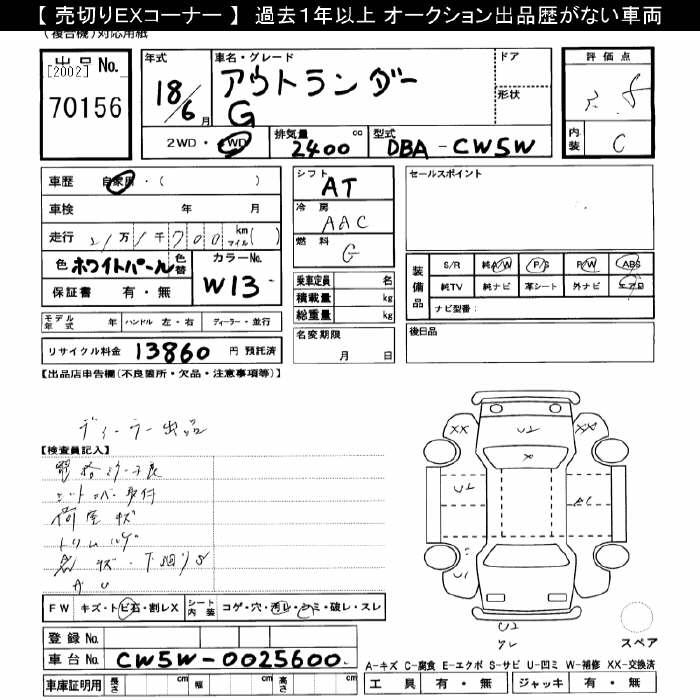 【 売切りEXコーナー 】 過去1年以上 オークション出品歴がない車両
(複合機)対応用紙
出品 No.
[2002]
70156
年式
18/6月
車名・グレード
アウトランダー
G
ドア
形状
評価点
内装 C
2WD・4WD
排気量 2400 cc
型式 DBA-CW5W
車歴 自家用・( )
車検 年 月
走行 21万1千700 km マイル( )
色 ホワイトパール 色替
カラーNo. W13
保証書 有・無
シフト AT
冷房 AAC
燃料 G
乗車定員 名
積載量 kg
総重量 kg
名変期限 月 日
セールスポイント
装備品
S/R 純A/W P/S P/W ABS
純TV 純ナビ 革シート 外ナビ エアB
ナビ型番:
後日品
モデル年式 年 ハンドル 左・右 ディーラー・並行
リサイクル料金 13860 円 預託済
【出品店申告欄(不良箇所・欠品・注意事項等)】
ディーラー出品
【検査員記入】
電格ミラー不良
シートカバー取付
荷室キズ
トリムハゲ
キズ・下回りS
A U
FW キズ・トビ石・割レX
シート内装 コゲ・穴・汚レ・シミ・破レ・スレ
登録 No.
車台 No. CW5W-0025600
車庫証明用 長さ cm 幅 cm 高さ cm
XX U2 XX
X
U2
A1
U1
U2
スペア
A-キズ C-腐食 E-エクボ S-サビ U-凹ミ W-補修 XX-交換済
工具 有・無 ジャッキ 有・無